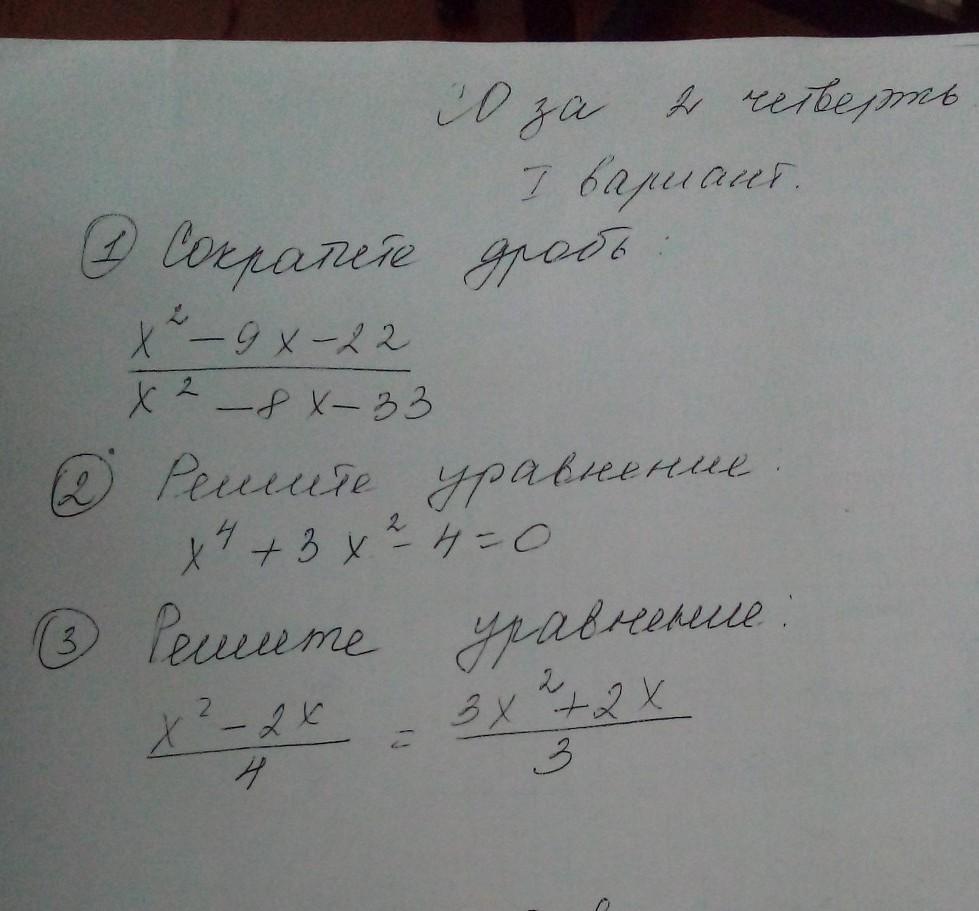 за 2 четверть
I вариант.
① Сократите дробь:
x² - 9x - 22
x² - 8x - 33
② Решите уравнение.
x⁴ + 3x² - 4 = 0
③ Решите уравнение:
x² - 2x = 3x² + 2x
4 3